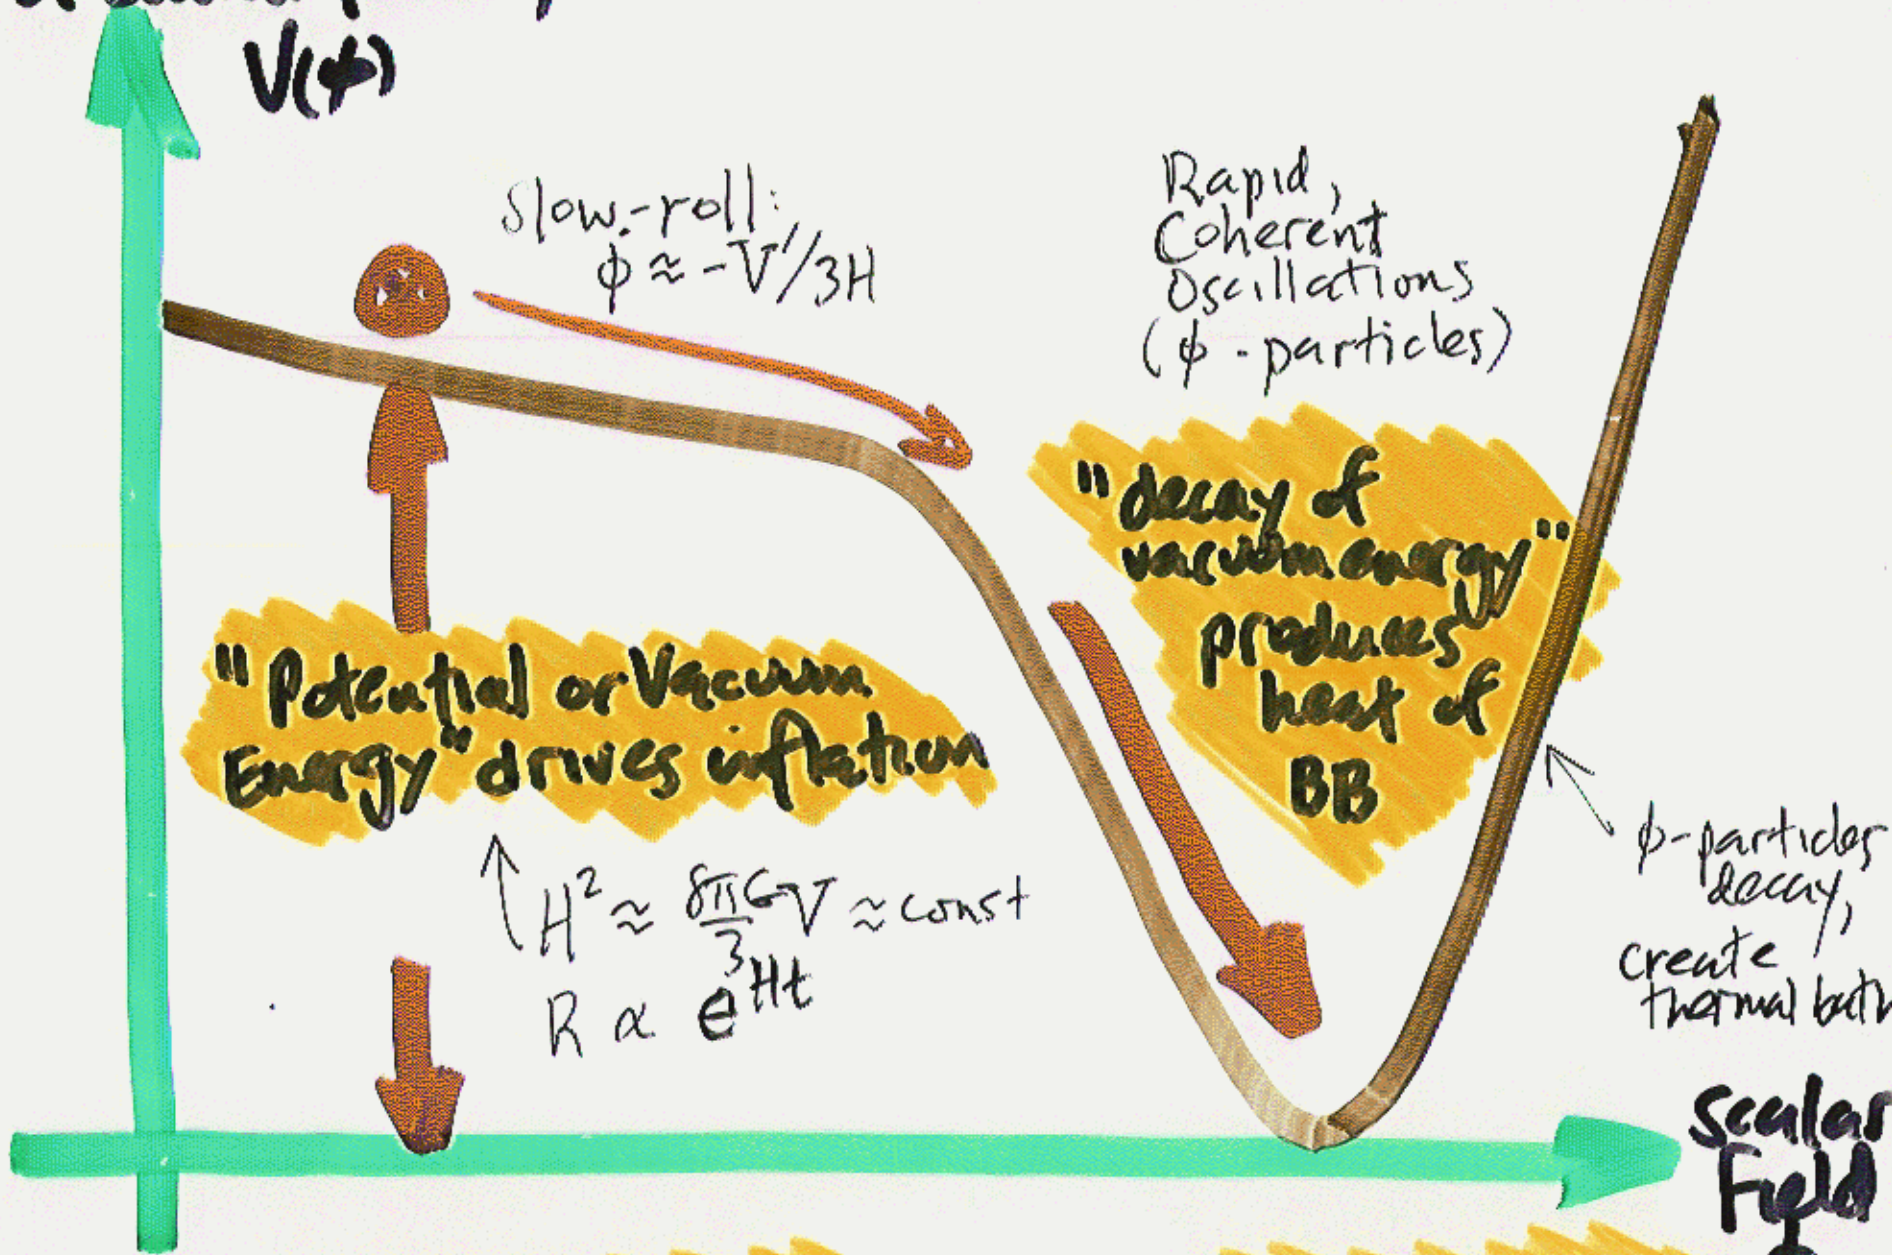 V(ϕ)
Slow-roll:
ϕ̇ ≈ -V'/3H
Rapid,
Coherent
Oscillations
(ϕ-particles)
"decay of
vacuum energy"
produces
heat of
BB
"Potential or Vacuum
Energy" drives inflation
H² ≈ 8πG/3 V ≈ const
R ∝ e^Ht
ϕ-particles
decay,
create
thermal bath
Scalar
Field